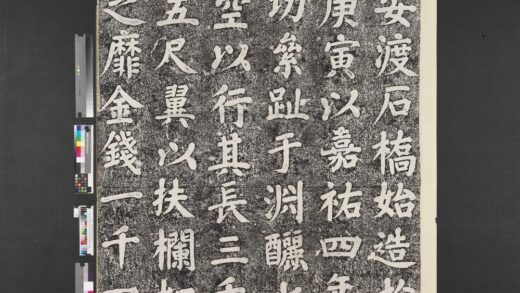 安渡石橋始造
庚寅以嘉祐四年
功絫趾于淵釃
空以行其長三千
五尺翼以扶欄如
之靡金錢一千